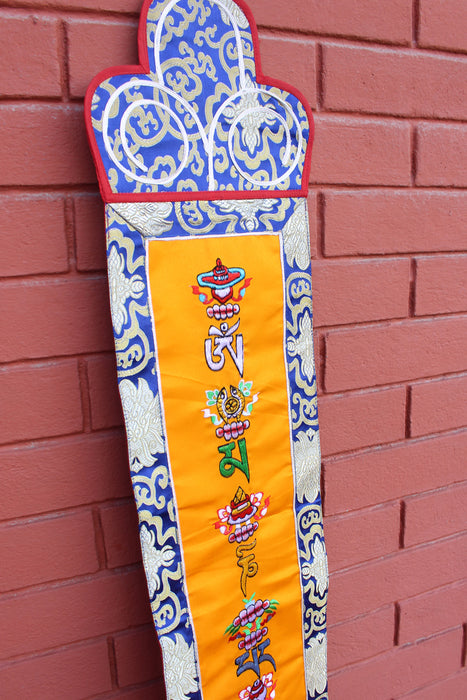 ཨོཾ
མ
ཎི
པད